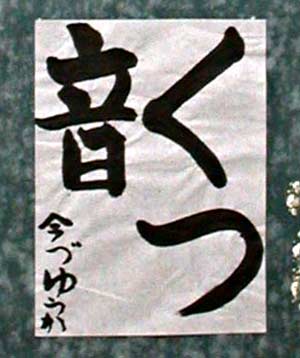 くつ
音
今づゆうか